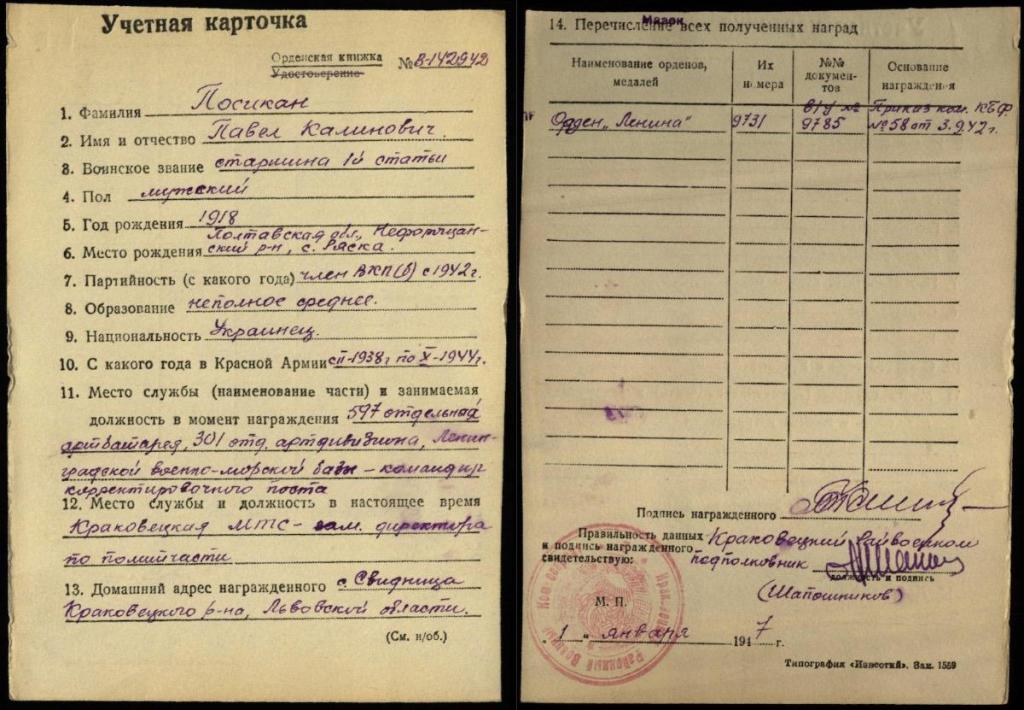 Учетная карточка
Орденская книжка
Удостоверение
№ В-142942
1. Фамилия Посикан
2. Имя и отчество Павел Калинович.
3. Воинское звание старшина 1й статьи
4. Пол мужский
5. Год рождения 1918
Полтавская обл., Нефорощан-
6. Место рождения ский р-н, с. Ряска.
7. Партийность (с какого года) член ВКП(б) с 1942г.
8. Образование неполное среднее.
9. Национальность Украинец.
10. С какого года в Красной Армии с II-1938г по X-1944г.
11. Место службы (наименование части) и занимаемая
должность в момент награждения 597 отдельной
артбатарея, 301 отд. артдивизиона, Ленин-
градской военно-морской базы - командир
корректировочного поста
12. Место службы и должность в настоящее время
Краковецкая МТС - зам. директора
по политчасти
13. Домашний адрес награжденного с. Свидница
Краковецкого р-на, Львовской области.
(См. н/об.)
14. Перечисление всех полученных наград
Наименование орденов, медалей
Их номера
№№ документов
Основание награждения
Орден „Ленина"
9731
в/у № 9785
Приказ ком. КБФ
№ 58 от 3.9.42г.
Подпись награжденного
Правильность данных
и подпись награжденного
свидетельствую:
Краковецкий Райвоенком
подполковник
должность и подпись
(Шапошников)
М. П.
„1" января 1947 г.
Типография «Известий». Зак. 1559